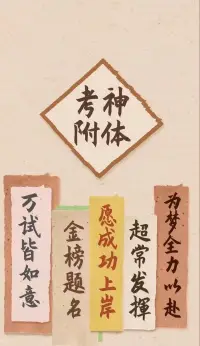 考神
附体
万试皆如意
金榜题名
愿成功上岸
超常发挥
为梦全力以赴